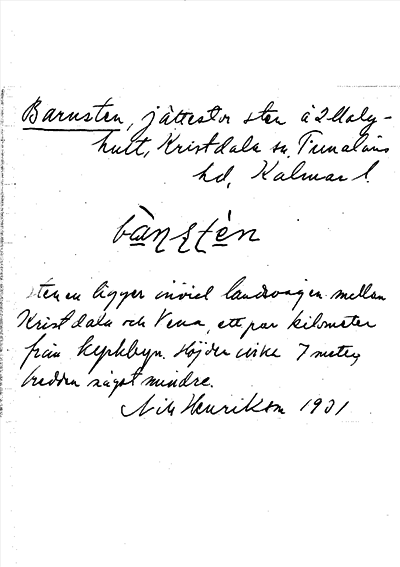 Barnsten, jättestor sten å Malg-
hult, Kristdala sn, Tunaläns
hd, Kalmar l.
bànstén
stenen ligger invid landsvägen mellan
Kristdala och Vena, ett par kilometer
från kyrkbyn. Höjden cirka 7 meter,
bredden något mindre.
Nils Henrikson 1931